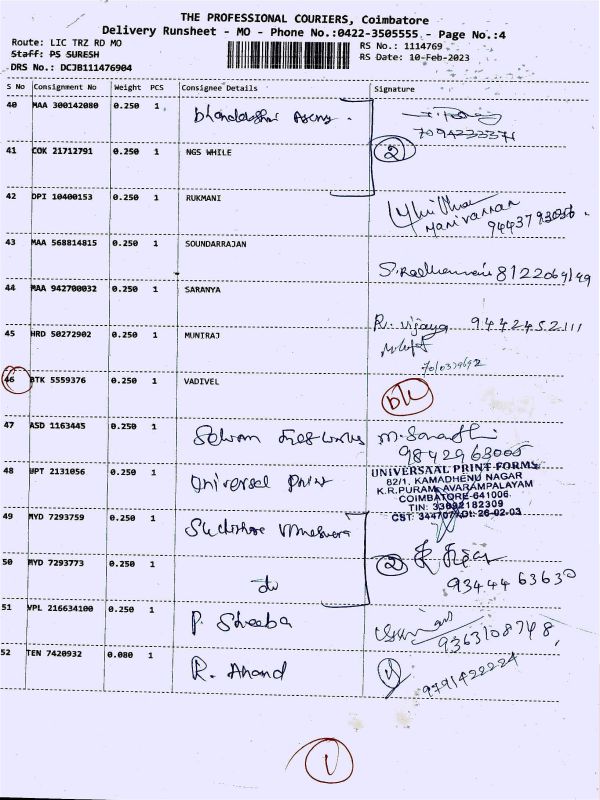 THE PROFESSIONAL COURIERS, Coimbatore
Delivery Runsheet - MO - Phone No.:0422-3505555 - Page No.:4
Route: LIC TRZ RD MO
RS No.: 1114769
Staff: PS SURESH
RS Date: 10-Feb-2023
DRS No.: DCJB111476904
S No Consignment No Weight PCS Consignee Details Signature
40 MAA 300142080 0.250 1
41 COK 21712791 0.250 1 NGS WHILE 2
42 DPI 10400153 0.250 1 RUKMANI
Manivannan
43 MAA 568814815 0.250 1 SOUNDARRAJAN
44 MAA 942700032 0.250 1 SARANYA
R. Vijaya 9442452111
45 HRD 50272902 0.250 1 MUNIRAJ
46 BTK 5559376 0.250 1 VADIVEL
47 ASD 1163445 0.250 1 Selvam
9842963005
48 UPT 2131056 0.250 1 Universal Print
UNIVERSAAL PRINT FORMS
82/1, KAMADHENU NAGAR
K.R.PURAM, AVARAMPALAYAM
COIMBATORE-641006
TIN: 33692182309
CST: 344707 Dt: 26-02-03
49 MYD 7293759 0.250 1
50 MYD 7293773 0.250 1 2
9344463630
51 VPL 216634100 0.250 1 P. Sheeba
9363108748
52 TEN 7420932 0.080 1 R. Anand
9791422224